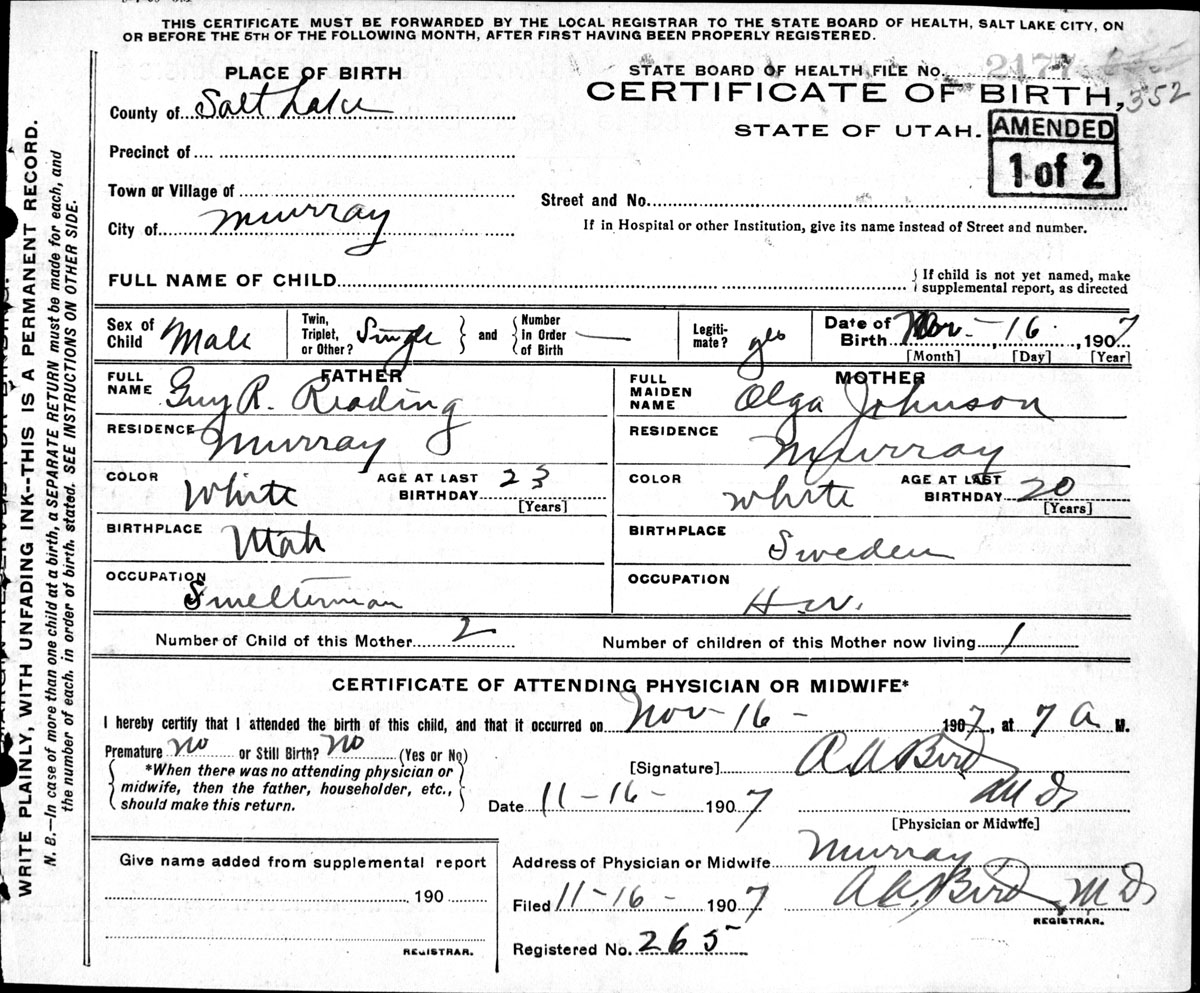 THIS CERTIFICATE MUST BE FORWARDED BY THE LOCAL REGISTRAR TO THE STATE BOARD OF HEALTH, SALT LAKE CITY, ON
OR BEFORE THE 5TH OF THE FOLLOWING MONTH, AFTER FIRST HAVING BEEN PROPERLY REGISTERED.
WRITE PLAINLY, WITH UNFADING INK--THIS IS A PERMANENT RECORD.
N. B.—In case of more than one child at a birth, a SEPARATE RETURN must be made for each, and
the number of each, in order of birth, stated. SEE INSTRUCTIONS ON OTHER SIDE.
PLACE OF BIRTH
County of Salt Lake
Precinct of
Town or Village of
City of Murray
STATE BOARD OF HEALTH FILE No. 2177
CERTIFICATE OF BIRTH, 352
STATE OF UTAH.
AMENDED
1 of 2
Street and No.
If in Hospital or other Institution, give its name instead of Street and number.
FULL NAME OF CHILD
{ If child is not yet named, make
supplemental report, as directed
Sex of Child Male
Twin, Triplet, or Other? Single } and { Number in Order of Birth —
Legiti-mate? yes
Date of Birth Nov - 16 , 1907
[Month] [Day] [Year]
FATHER
FULL NAME Guy R. Reading
RESIDENCE Murray
COLOR White AGE AT LAST BIRTHDAY 23
[Years]
BIRTHPLACE Utah
OCCUPATION Smelterman
MOTHER
FULL MAIDEN NAME Olga Johnson
RESIDENCE Murray
COLOR white AGE AT LAST BIRTHDAY 20
[Years]
BIRTHPLACE Sweden
OCCUPATION H.W.
Number of Child of this Mother 2 Number of children of this Mother now living 1
CERTIFICATE OF ATTENDING PHYSICIAN OR MIDWIFE*
I hereby certify that I attended the birth of this child, and that it occurred on Nov - 16 - 1907, at 7 A M.
Premature no or Still Birth? no (Yes or No)
*When there was no attending physician or
midwife, then the father, householder, etc.,
should make this return.
[Signature] A A Bird
Date 11-16- 1907 M D
[Physician or Midwife]
Give name added from supplemental report
190
REGISTRAR.
Address of Physician or Midwife Murray
Filed 11-16- 1907 A A Bird M D
REGISTRAR.
Registered No. 265